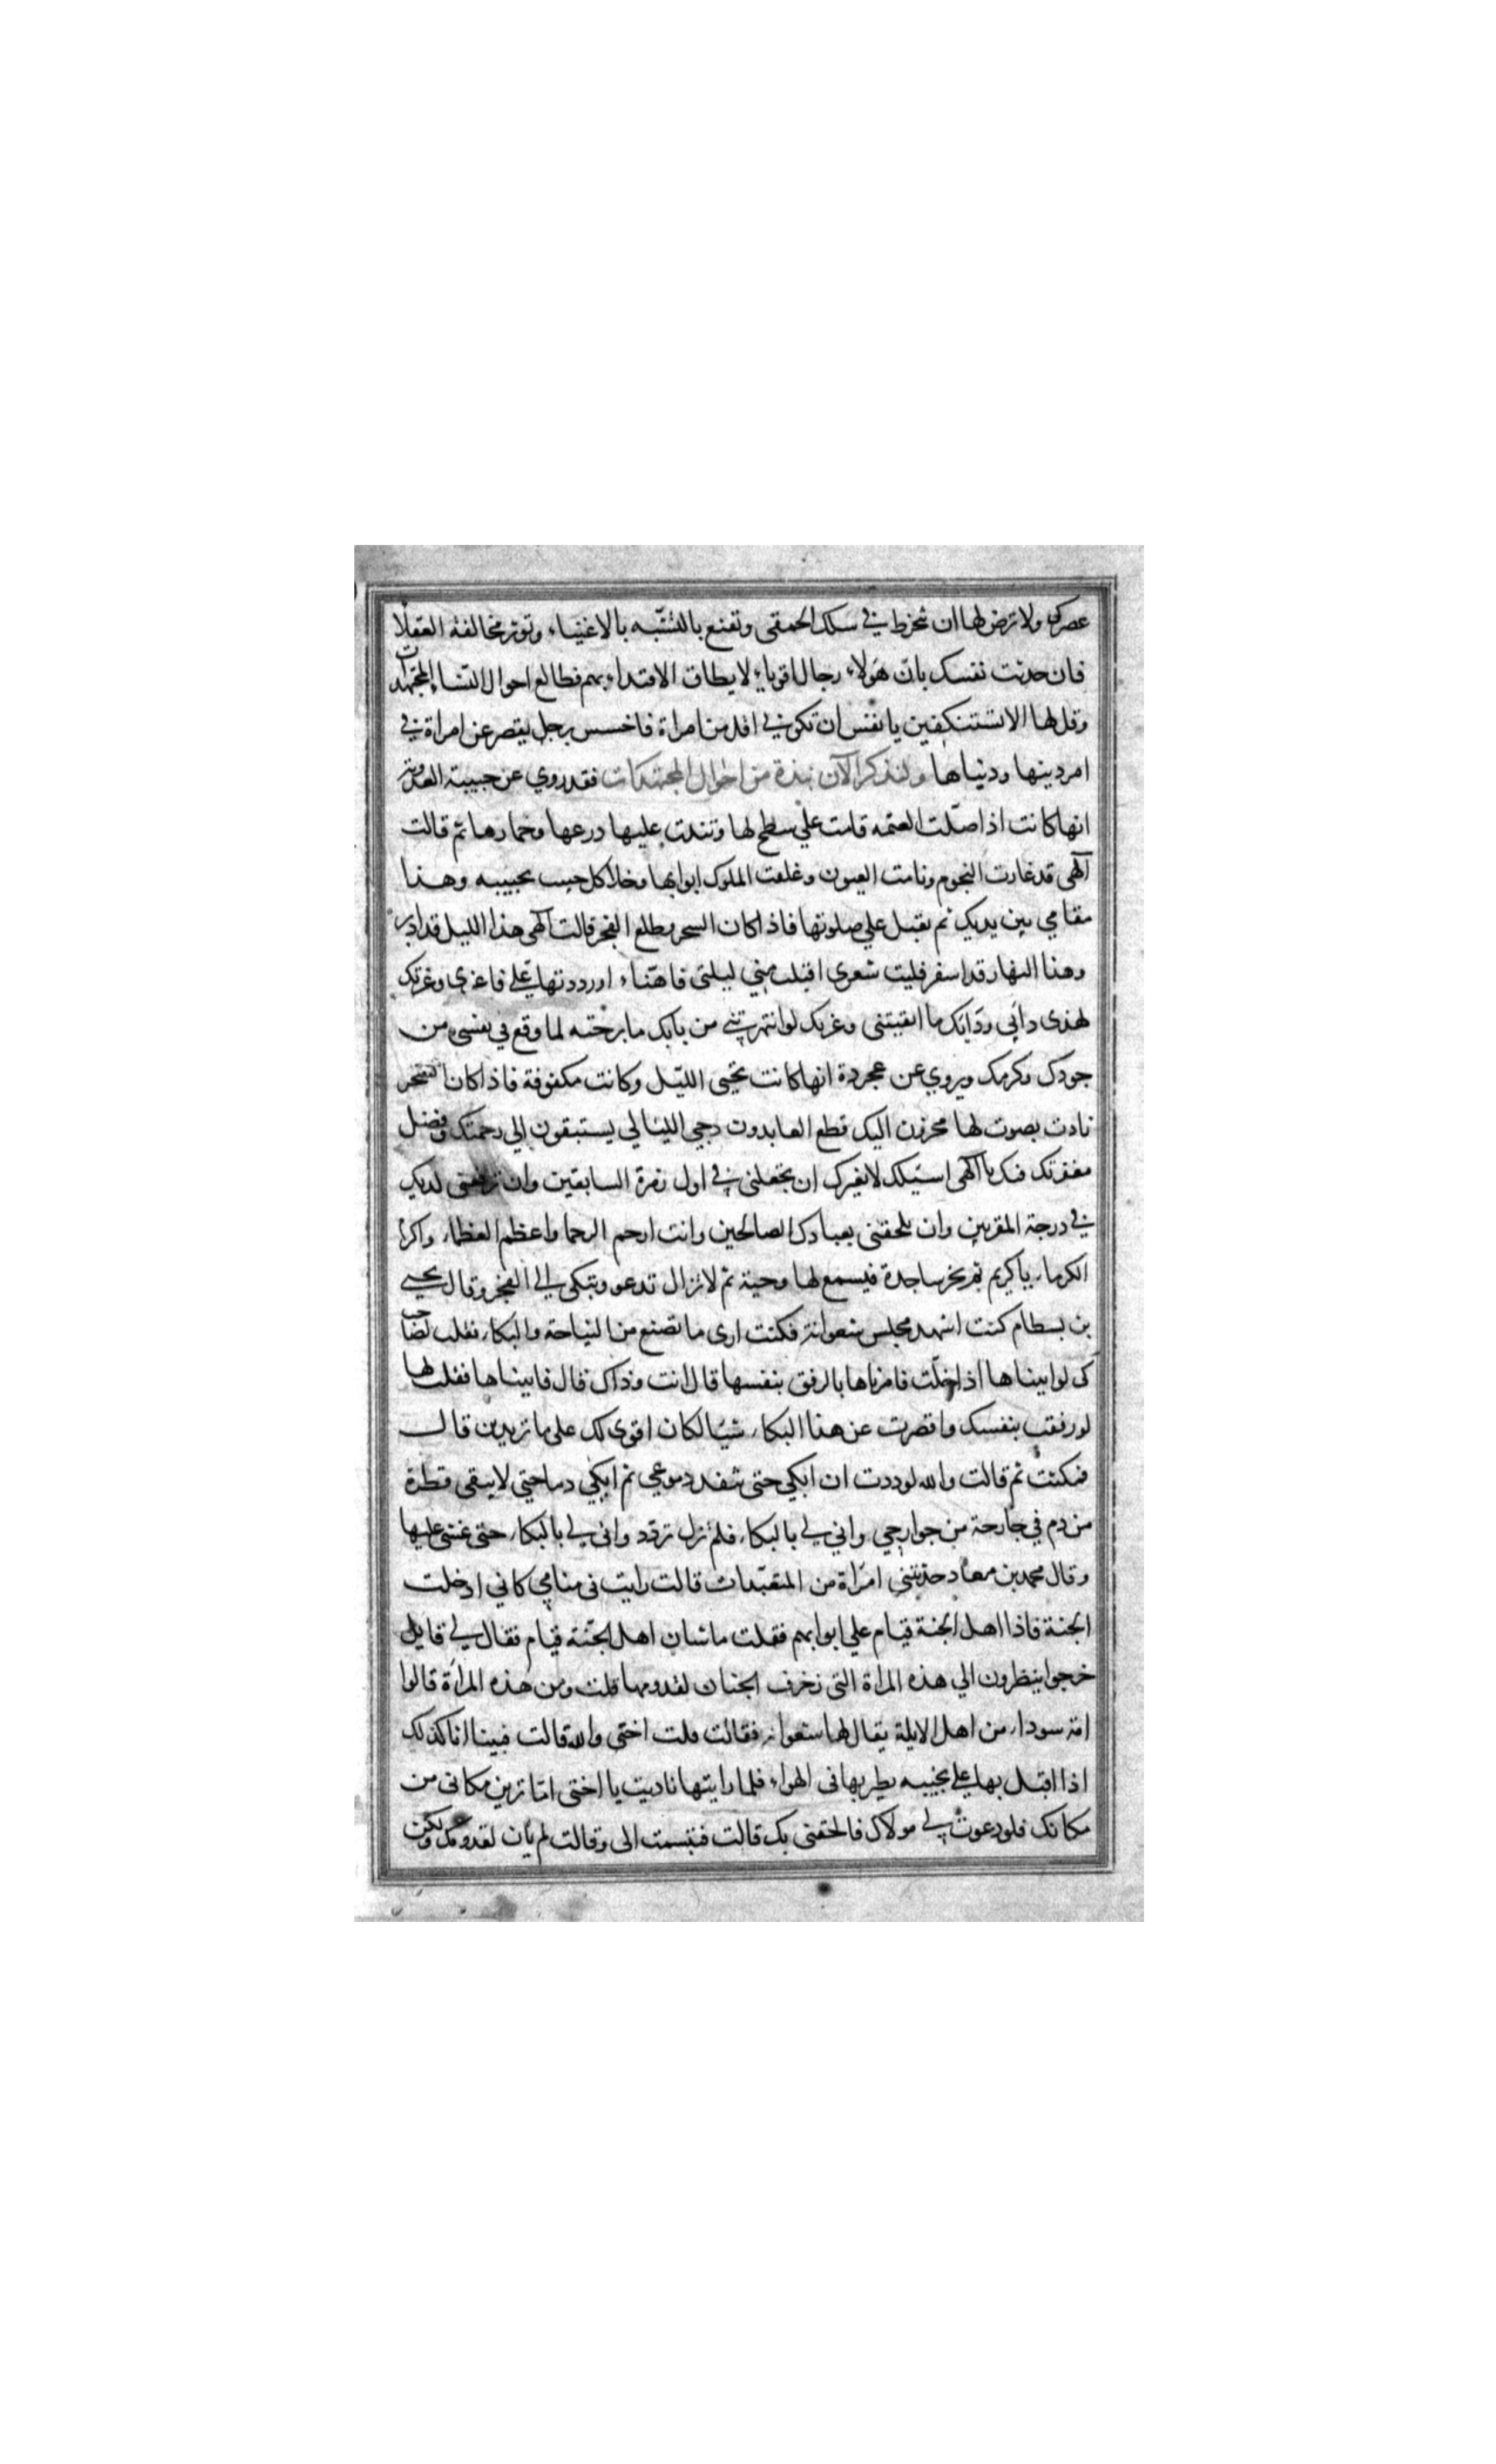 عصرك ولا ترض لها ان تنخرط في سلك الحمقى وتقنع بالتشبه بالاغنياء وتوثر مخالفة العقلا
فان حدثت نفسك بان هولاء رجال اقوياء لا يطاق الاقتداء بهم فطالع احوال النساء المجتهدات
وقل لها الا تستنكفين يا نفس ان تكوني اقل من امراة فاخسس برجل يقصر عن امراة في
امر دينها ودنياها ولنذكر الآن نبذة من احوال المجتهدات فقد روي عن حبيبة العدوية
انها كانت اذا صلت العتمه قامت علي سطح لها وشدت عليها درعها وخمارها ثم قالت
آلهى قد غارت النجوم ونامت العيون وغلقت الملوك ابوابها وخلا كل حبيب بحبيبه وهذا
مقامي بين يديك ثم تقبل علي صلوتها فاذا كان السحر وطلع الفجر قالت آلهى هذا الليل قد ادبر
وهذا النهار قد اسفر فليت شعرى اقبلت مني ليلتى فاهنّاء او رددتها علي فاعزى وعزتك
لهذى دابي ودابك ما ابقيتنى وعزتك لو انتهرتني من بابك ما برحته لما وقع في نفسي من
جودك وكرمك ويروي عن عجردة انها كانت تحيى الليل وكانت مكفوفة فاذا كان السحر
نادت بصوت لها محزن اليك قطع العابدون دجي الليالي يستبقون الي رحمتك وفضل
مغفرتك فبك يا آلهى اسئلك لا بغيرك ان تجعلنى في اول زمرة السابقين وان ترفعنى لديك
في درجة المقربين وان تلحقنى بعبادك الصالحين وانت ارحم الرحما واعظم العظماء واكرم
الكرماء يا كريم ثم تخر ساجدة فيسمع لها وجبة ثم لا تزال تدعو وتبكى الي الفجر وقال يحيي
بن بسطام كنت اشهد مجلس شعوانة فكنت ارى ما تصنع من النياحة والبكاء فقلت لصاحب
لى لو اتيناها اذا خلت فامرناها بالرفق بنفسها قال انت وذاك قال فاتيناها فقلت لها
لو رفقت بنفسك واقصرت عن هذا البكاء شيئا لكان اقوى لك على ما تريدين قالـ
فبكت ثم قالت والله لوددت ان ابكي حتى تنفد دموعي ثم ابكي دما حتي لا يبقى قطرة
من دم في جارحة من جوارحي واني لي بالبكاء فلم تزل تردد وانى لي بالبكاء حتى غشى عليها
وقال محمد بن معاد حدثتني امراة من المتعبدات قالت رايت فى منامي كاني ادخلت
الجنة فاذا اهل الجنة قيام علي ابوابهم فقلت ما شان اهل الجنة قيام فقال لي قايل
خرجوا ينظرون الي هذه المراة التى زخرف الجنان لقدومها قلت ومن هذه المراة قالوا
امة سوداء من اهل الايلة يقال لها شعوانه فقالت قلت اختى والله قالت فبينا انا كذلك
اذا اقبل بها علي نجيبه يطير بها فى الهواء فلما رايتها ناديت يا اختى اما ترين مكانى من
مكانك فلو دعوت لي مولاك فالحقنى بك قالت فتبسمت الى وقالت لم يأن لقدومك ولكن